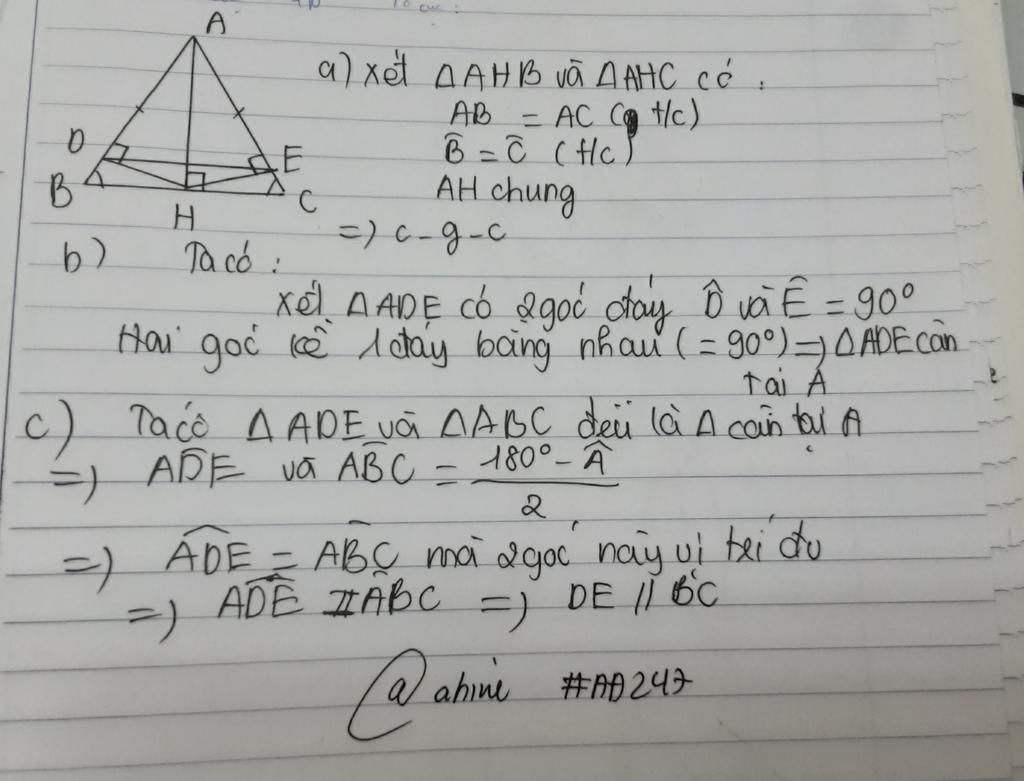 A
a) Xét ΔAHB và ΔAHC có :
AB = AC ( t/c)
B̂ = Ĉ (t/c)
AH chung
=) c-g-c
D
E
B
H
C
b) Ta có :
Xét ΔADE có 2 góc đáy D̂ và Ê = 90°
Hai góc kề 1 đáy bằng nhau (= 90°) =) ΔADE cân
tại A
c) Ta có ΔADE và ΔABC đều là Δ cân tại A
=) ADE và ABC = 180° - Â / 2
=) ADE = ABC mà 2 góc này vị trí đv
=) ADE ABC =) DE // BC
@ahine #AĐ247